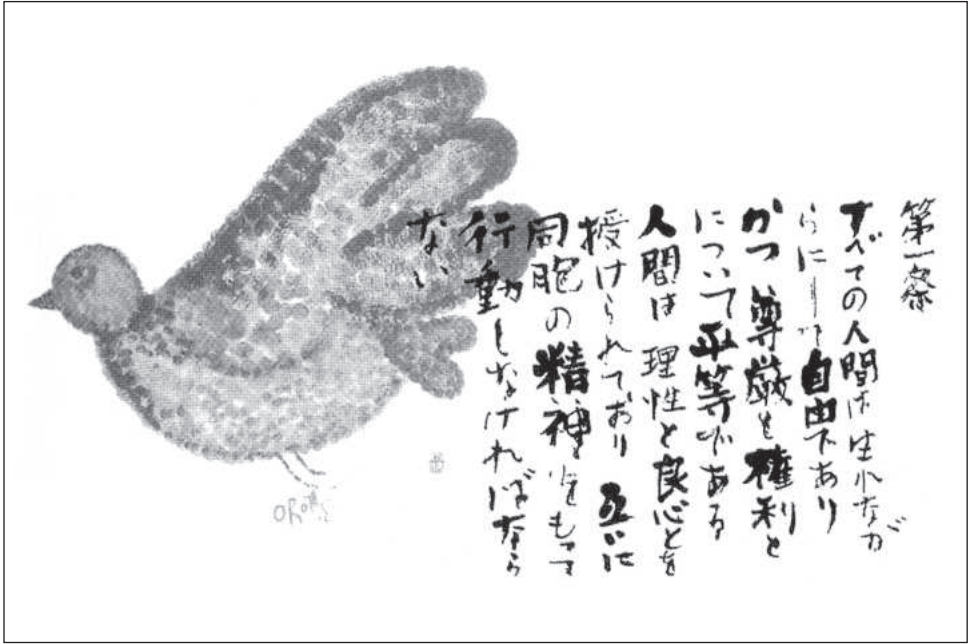 第一條
すべての人間は生れなが
らにして自由であり
かつ 尊厳と権利と
について平等である
人間は 理性と良心とを
授けられており 互いに
同胞の精神をもって
行動しなければなら
ない